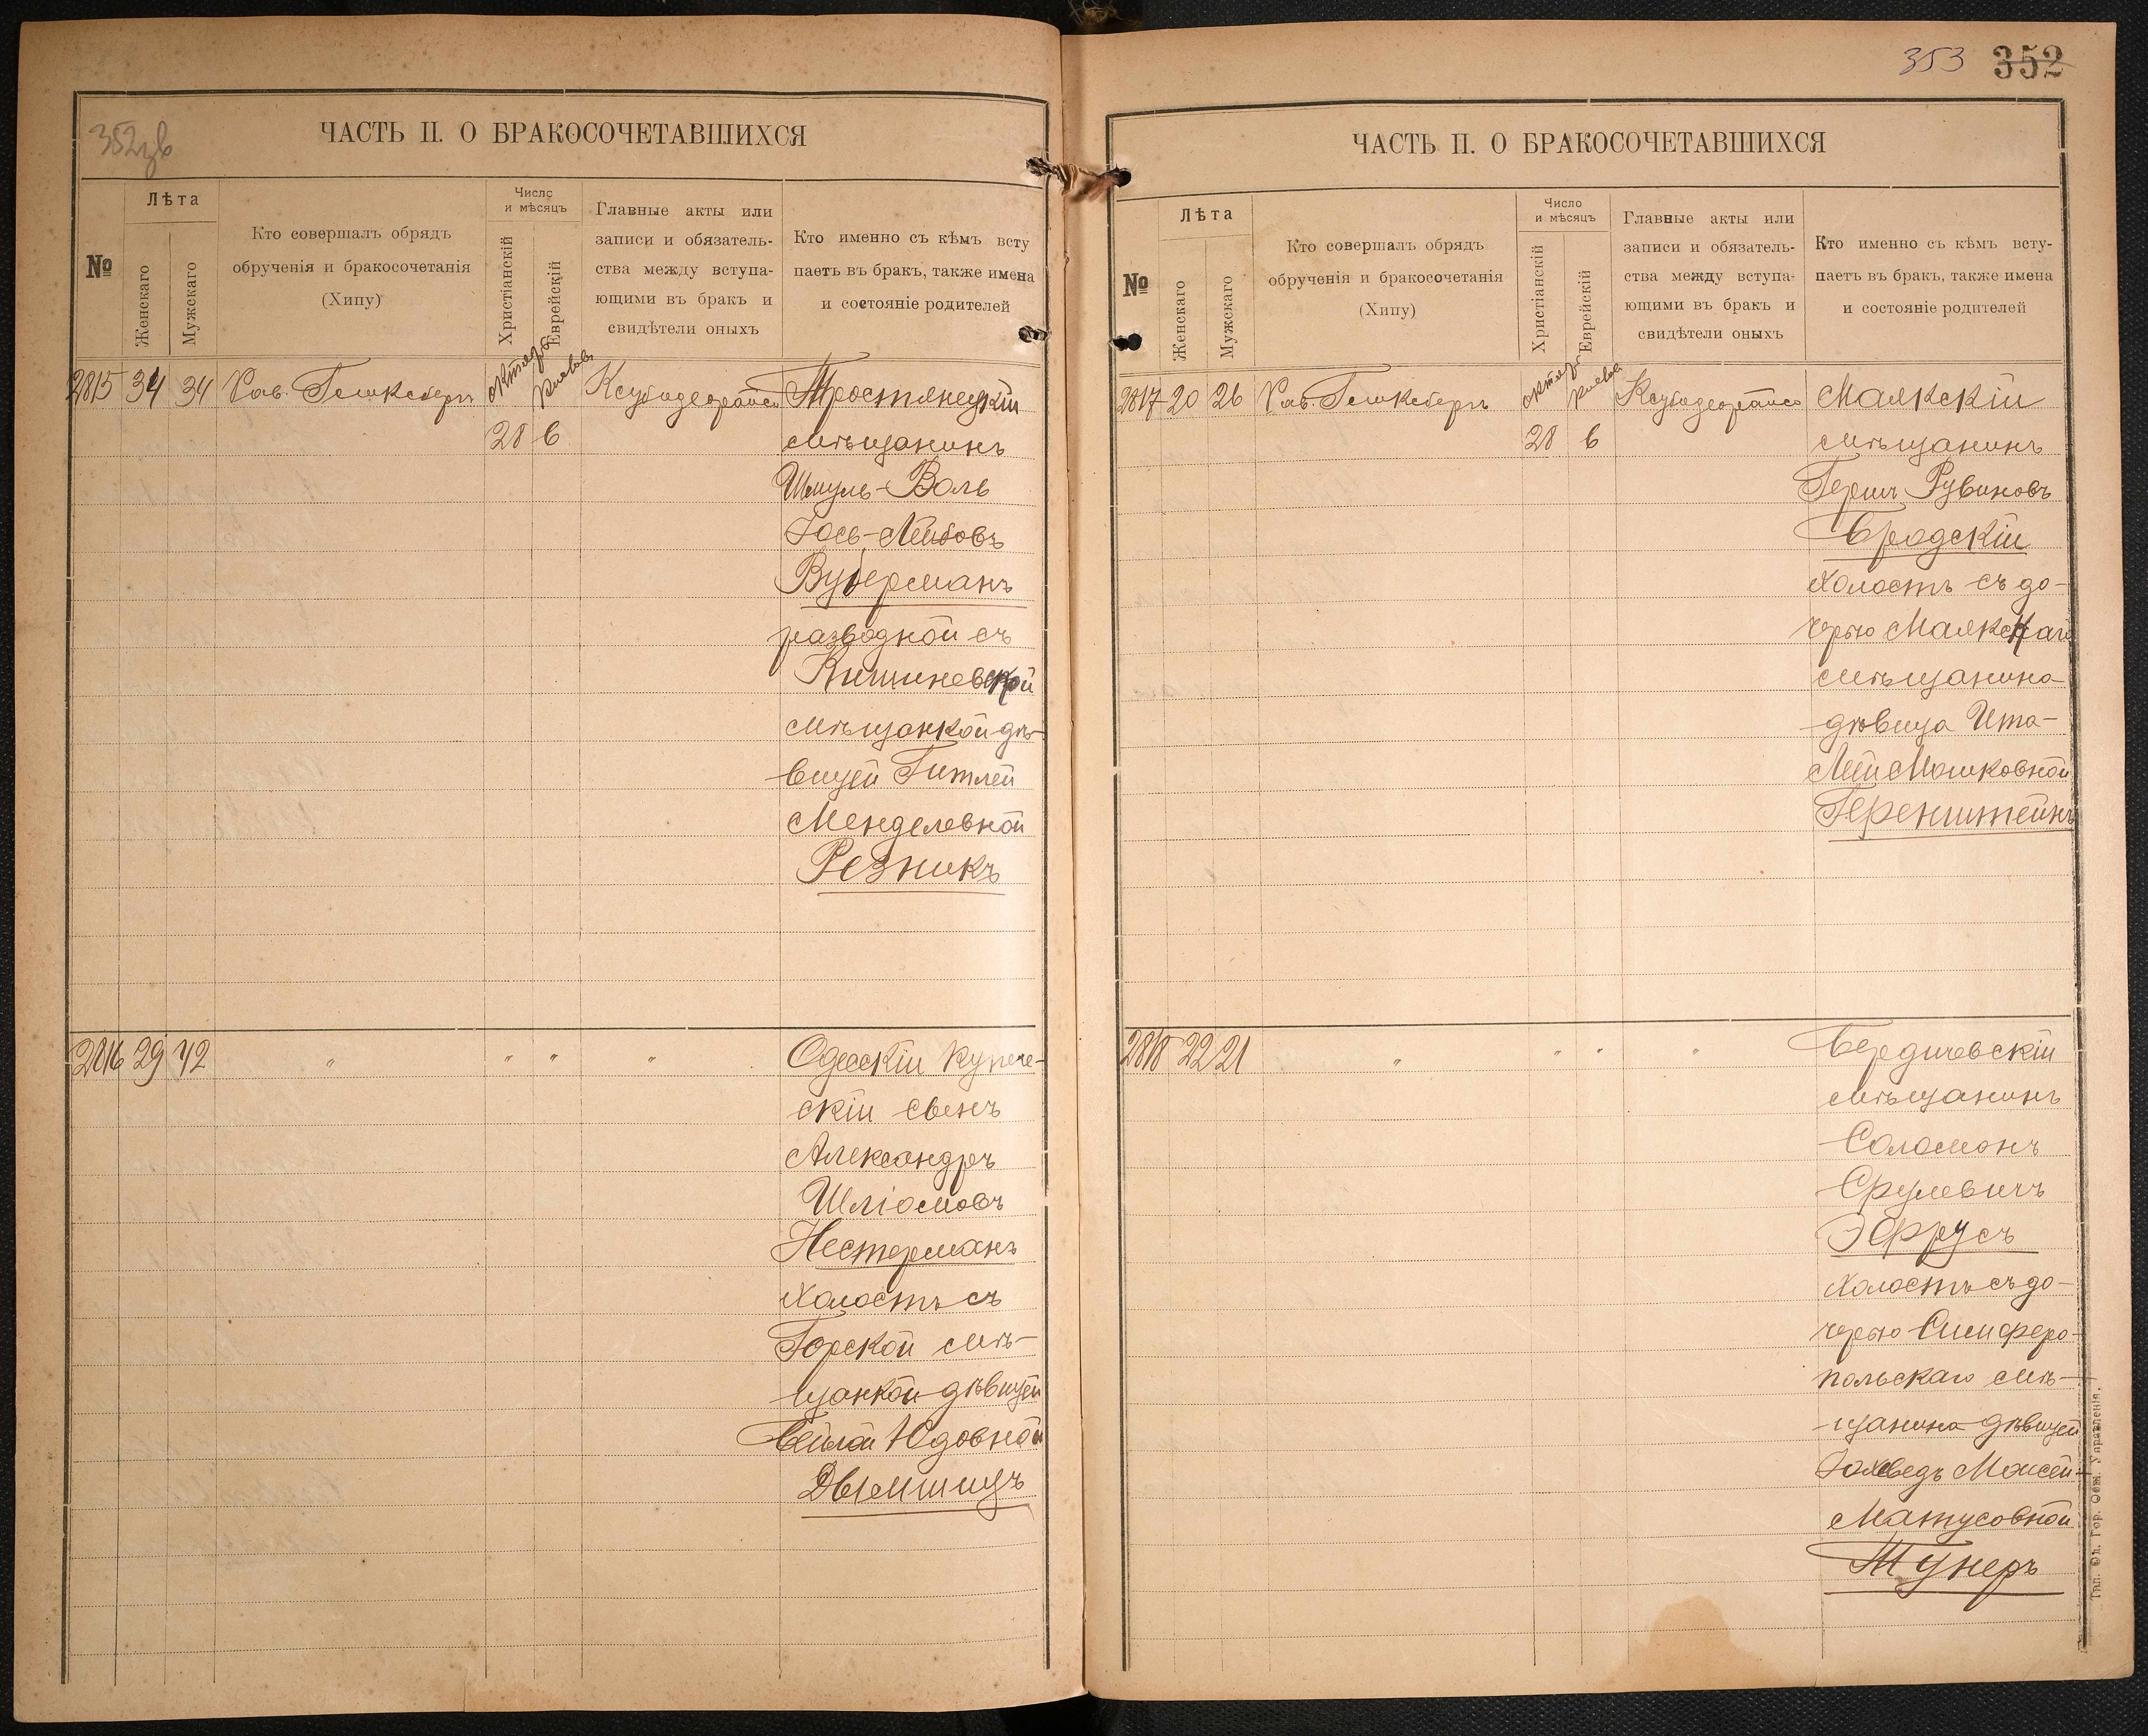 353 352
352зв
ЧАСТЬ II. О БРАКОСОЧЕТАВШИХСЯ
№
Лѣта
Женскаго
Мужскаго
Кто совершалъ обрядъ
обрученія и бракосочетанія
(Хипу)
Число
и мѣсяцъ
Христіанскій
Еврейскій
Главные акты или
записи и обязатель-
ства между вступа-
ющими въ бракъ и
свидѣтели оныхъ
Кто именно съ кѣмъ всту
паетъ въ бракъ, также имена
и состояніе родителей
2815 34 34 Рав.
28 6
Тростянецкій
мѣщанинъ
Шмуль-Воль
Іось-Лейбовъ
Вуберманъ
разводной съ
Кишиневской
мѣщанкой дѣ-
вицей Гитлей
Менделевной
Резникъ
2816 29 42 " " " "
Одесскій купече-
скій сынъ
Александръ
Шліомовъ
Нестерманъ
холостъ съ
Горской мѣ-
щанкой дѣвицей
Бейлой Юдовной
Двыемишцъ
ЧАСТЬ II. О БРАКОСОЧЕТАВШИХСЯ
№
Лѣта
Женскаго
Мужскаго
Кто совершалъ обрядъ
обрученія и бракосочетанія
(Хипу)
Число
и мѣсяцъ
Христіанскій
Еврейскій
Главные акты или
записи и обязатель-
ства между вступа-
ющими въ бракъ и
свидѣтели оныхъ
Кто именно съ кѣмъ всту-
паетъ въ бракъ, также имена
и состояніе родителей
2817 20 26 Рав.
28 6
Маякскій
мѣщанинъ
Гершъ Рувиновъ
Бродскій
холостъ съ до-
черью Маякскаго
мѣщанина
дѣвица Ита-
Лей Мошковной
Геренштейнъ
2818 22 21 " " " "
Бердичевскій
мѣщанинъ
Соломонъ
Срулевичъ
Эфрусъ
холостъ съ до-
черью Симферо-
польскаго мѣ-
щанина дѣвицей
Іохведъ Моисей-
Матусовной
Тунеръ
Тип. Од. Гор. Общ. Управленія.